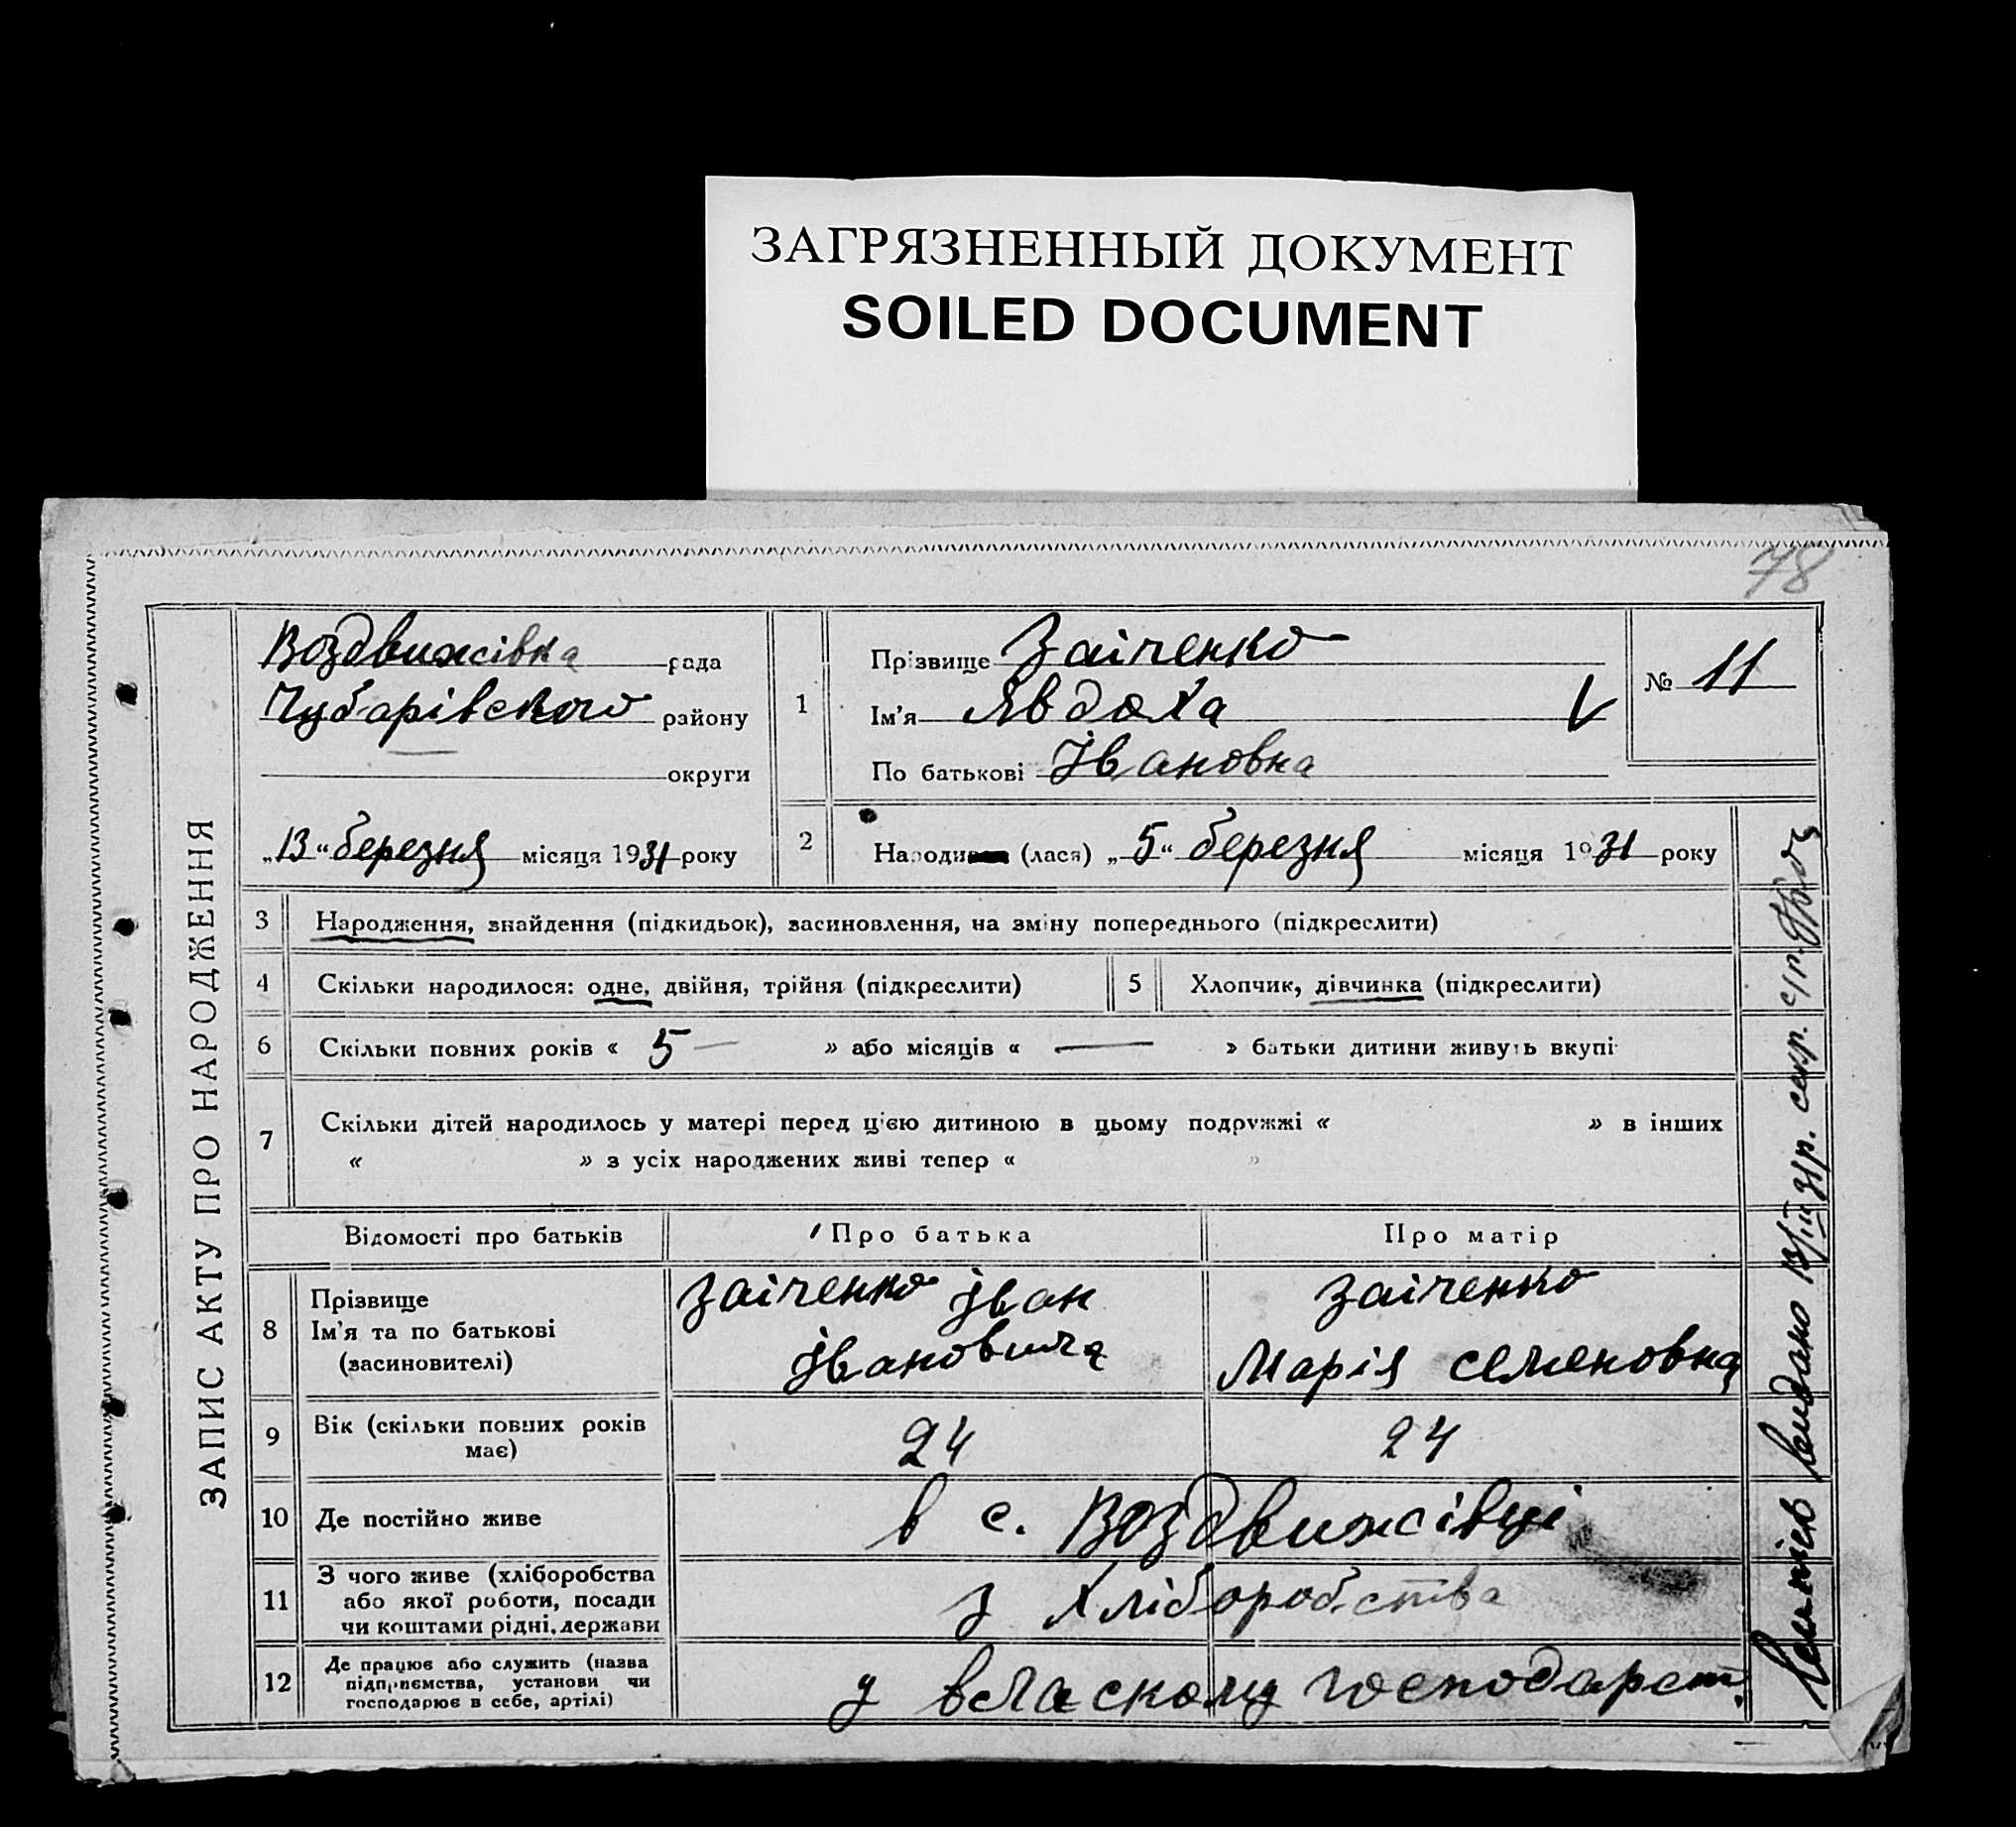 ЗАГРЯЗНЕННЫЙ ДОКУМЕНТ
SOILED DOCUMENT
78
ЗАПИС АКТУ ПРО НАРОДЖЕННЯ
Воздвижівка рада
Чубарівского району
округи
„13“ березня місяця 1931 року
1
Прізвище Заіченко
Ім'я Явдоха V
По батькові Івановна
№ 11
2
Народи (лася) „5“ березня місяця 1931 року
3 Народження, знайдення (підкидьок), засиновлення, на зміну попереднього (підкреслити)
4 Скільки народилося: одне, двійня, трійня (підкреслити)
5 Хлопчик, дівчинка (підкреслити)
6 Скільки повних років « 5 — » або місяців « — » батьки дитини живуть вкупі
7 Скільки дітей народилось у матері перед цією дитиною в цьому подружжі « » в інших
« » з усіх народжених живі тепер « »
Відомості про батьків
Про батька
Про матір
8 Прізвище
Ім'я та по батькові
(засиновителі)
Заіченко Іван
Івановича
Заіченко
Марія Семеновна
9 Вік (скільки повних років
має)
24
24
10 Де постійно живе
в с. Воздвижівці
11 З чого живе (хліборобства
або якої роботи, посади
чи коштами рідні, держави
з хліборобства
12 Де працює або служить (назва
підприємства, установи чи
господарює в себе, артілі)
у власкому господарст.
видано